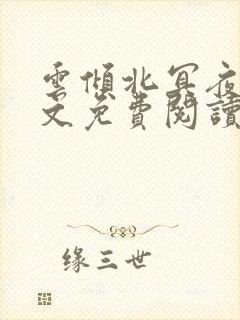 雲傾北冥夜
文免費閱讀
缘三世